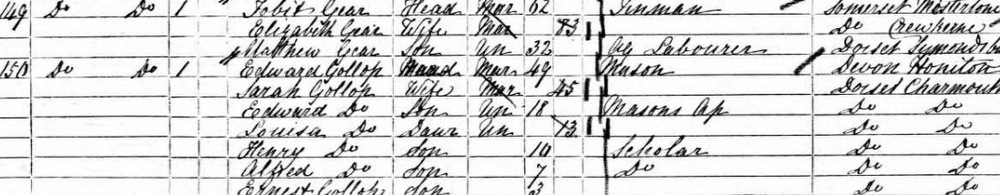 149 Do Do 1 Tobit Gear Head Mar 62 Tinman Somerset Mosterton
Elizabeth Gear Wife Mar 83 Do Crewkerne
Matthew Gear Son Un 32 Ag Labourer Dorset
150 Do Do 1 Edward Gollop Head Mar 49 Mason Devon Honiton
Sarah Gollop Wife Mar 45 Dorset Charmouth
Edward Do Son Un 18 Masons Ap Do Do
Louisa Do Daur Un 13 Do Do
Henry Do Son 10 Scholar Do Do
Alfred Do Son 7 Do Do Do
Ernest Gollop Son 3 Do Do